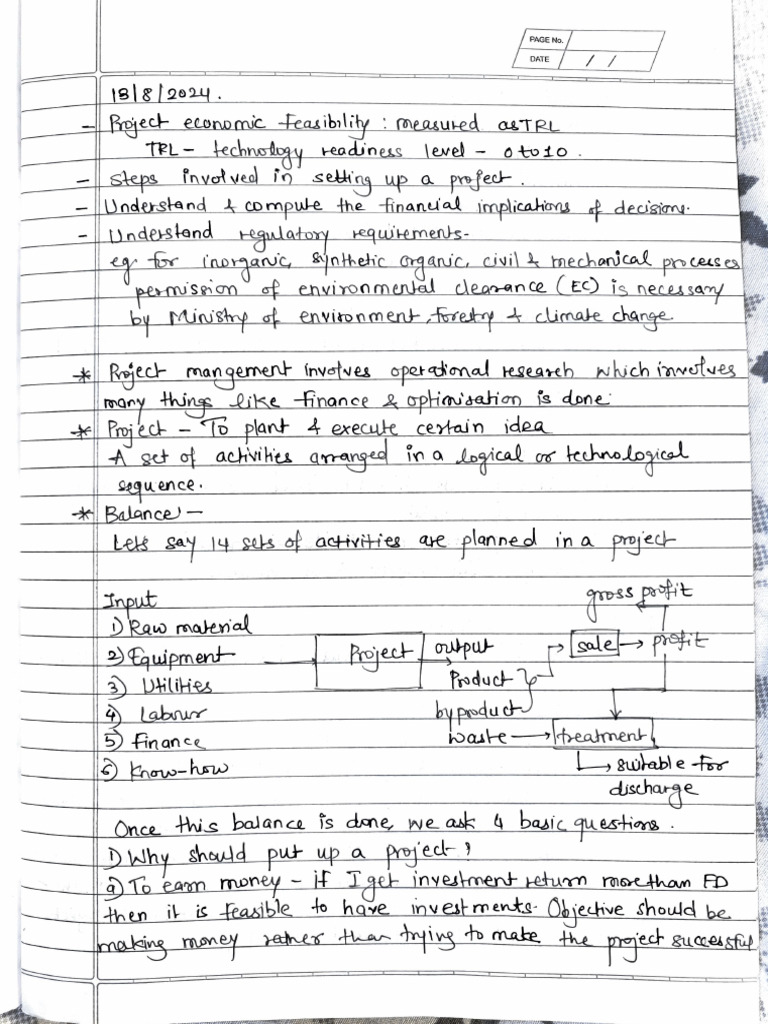 PAGE No.
DATE / /
13/8/2024.
- Project economic feasibility : measured as TRL
TRL - technology readiness level - 0 to 10.
- Steps involved in setting up a project.
- Understand & compute the financial implications of decisions.
- Understand regulatory requirements-
eg. for inorganic, synthetic organic, civil & mechanical processes
permission of environmental clearance (EC) is necessary
by Ministry of environment, forestry & climate change.
* Project mangement involves operational research which involves
many things like finance & optimisation is done.
* Project - To plant & execute certain idea
A set of activities arranged in a logical or technological
sequence.
* Balance -
Lets say 14 sets of activities are planned in a project
Input
1) Raw material
2) Equipment
3) Utilities
4) Labour
5) Finance
6) Know-how
Project
output
Product
byproduct
waste
sale
profit
gross profit
treatment
suitable for
discharge
Once this balance is done, we ask 4 basic questions.
1) Why should put up a project?
a) To earn money - if I get investment return more than FD
then it is feasible to have investments. Objective should be
making money rather than trying to make the project successful